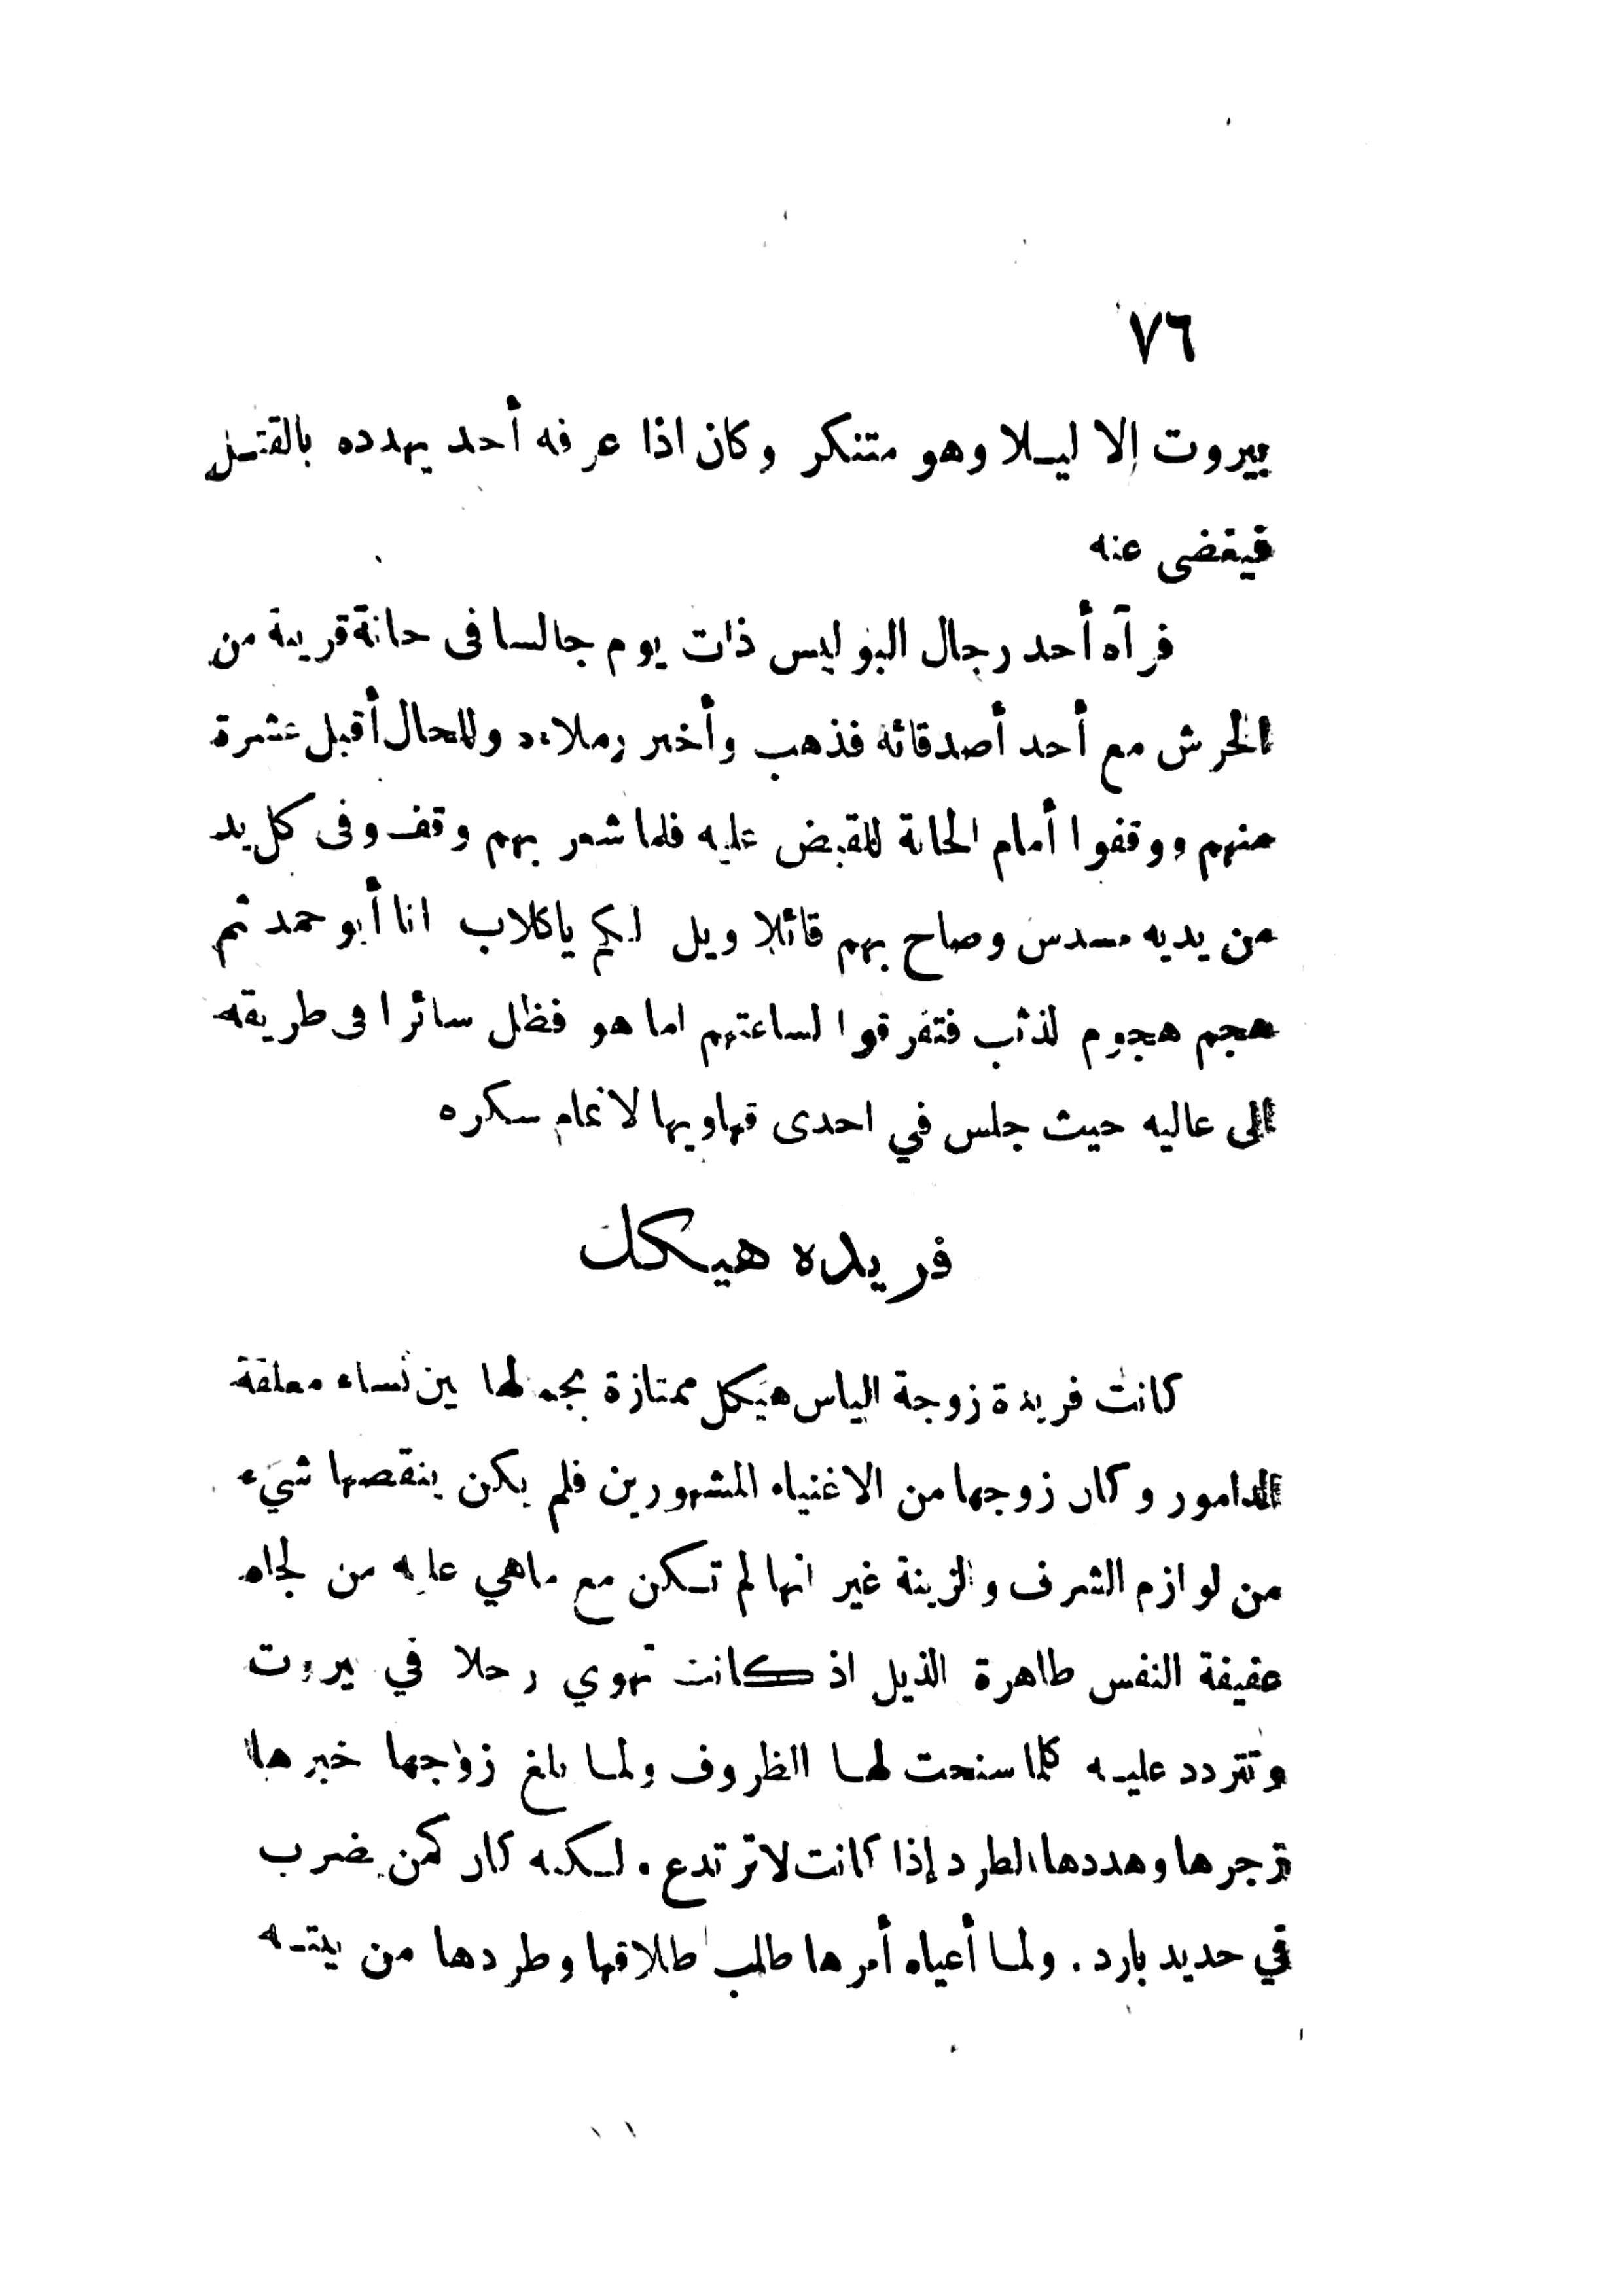 ٧٦
بيروت إلا ليلا وهو متنكر وكان اذا عرفه أحد يهدده بالقتل
فيغضى عنه
فرآه أحد رجال البوليس ذات يوم جالسا فى حانة قريبة من
الحرش مع أحد أصدقائه فذهب وأخبر زملاءه وللحال أقبل عشرة
منهم ووقفوا أمام الحانة للقبض عليه فلما شعر بهم وقف وفى كل يد
من يديه مسدس وصاح بهم قائلا ويل لكم ياكلاب انا أبو حمد ثم
هجم هجوم لذئب فتفرقوا لساعتهم اما هو فظل سائرا فى طريقه
الى عاليه حيث جلس في احدى قهاويها لاتمام سكره
فريده هيكل
كانت فريدة زوجة الياس هيكل ممتازة بجمالها بين نساء معلقة
الدامور وكان زوجها من الاغنياء المشهورين فلم يكن ينقصها شيء
من لوازم الشرف والزينة غير انها لم تكن مع ماهي عليه من لجاه
عفيفة النفس طاهرة الذيل اذ كانت تهوي رجلا في بيروت
وتتردد عليه كلما سنحت لها الظروف ولما بلغ زوجها خبرها
زجرها وهددها بالطرد إذا كانت لاترتدع. لكنه كان كمن يضرب
في حديد بارد. ولما أعياه أمرها طلب طلاقها وطردها من بيته